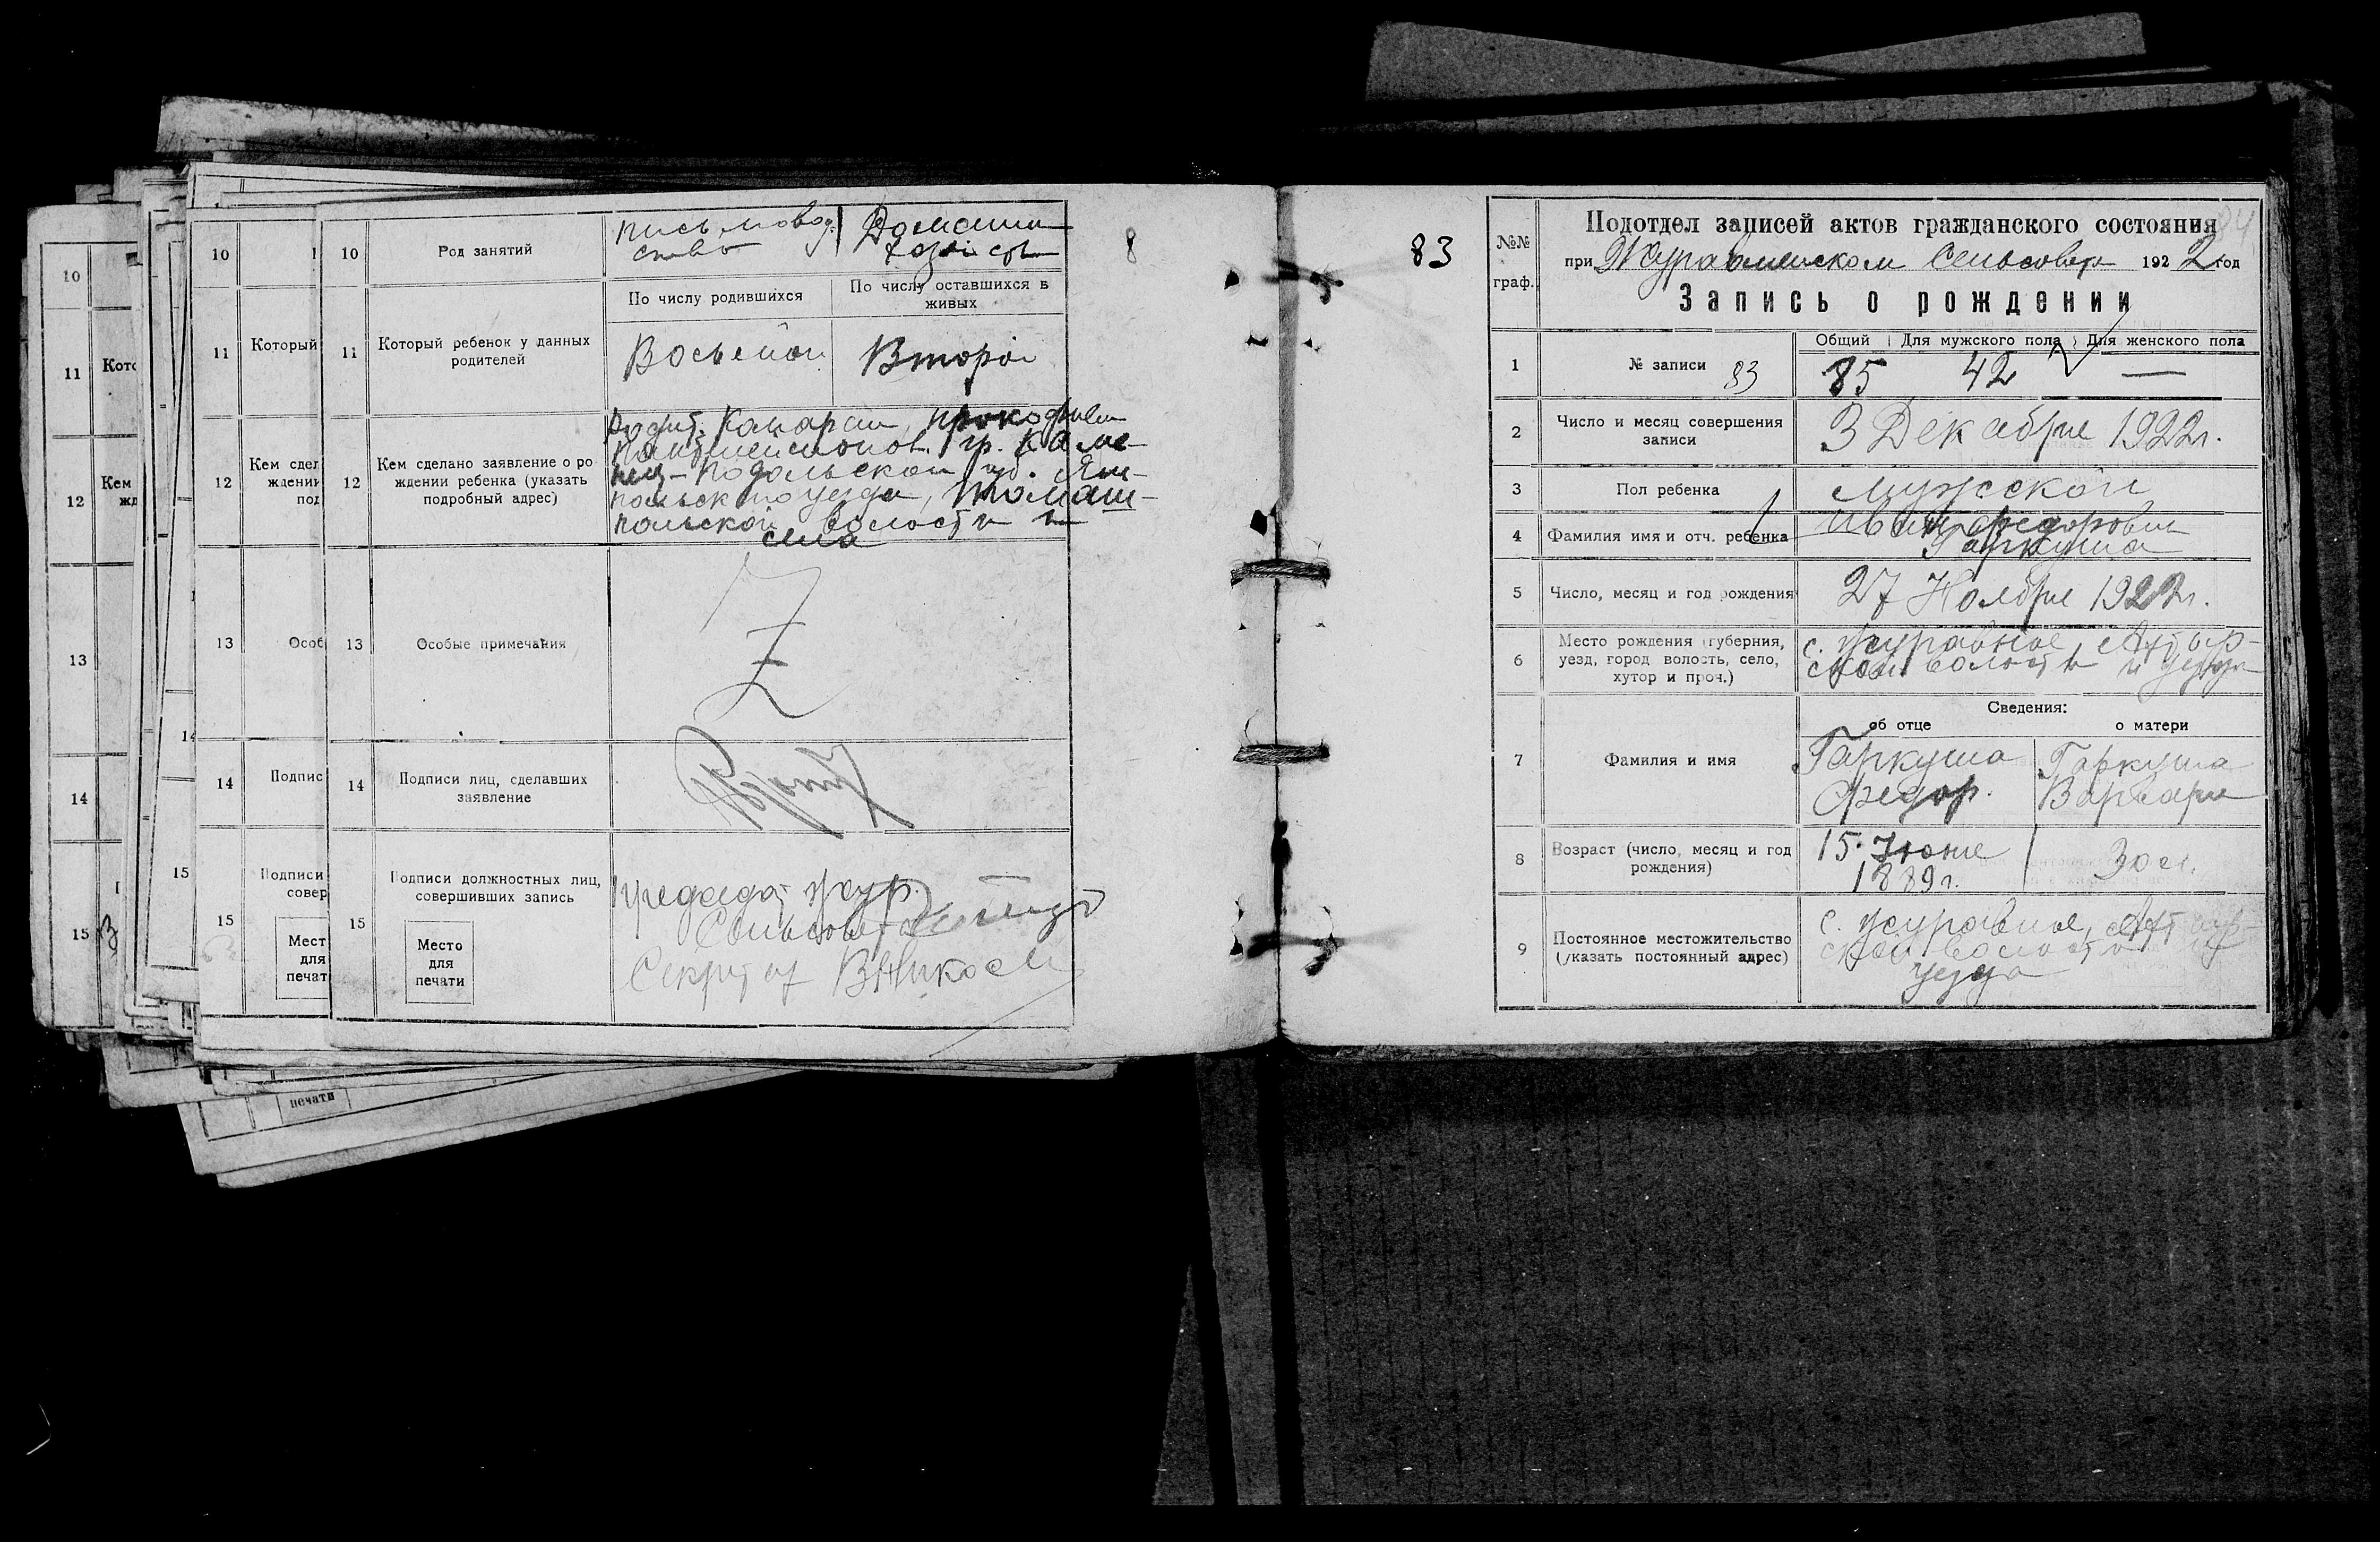 10
Род занятий
письмовод.
ство
Домашн
хозяйств
8
По числу родившихся
По числу оставшихся в
живых
11
Который ребенок у данных
родителей
Восьмой
Второй
12
Кем сделано заявление о ро
ждении ребенка (указать
подробный адрес)
гр. Каме-
нец-Подольской губ. Ям-
польского уезда, Томаш-
польской волости и
села
13
Особые примечания
Z
14
Подписи лиц, сделавших
заявление
15
Подписи должностных лиц,
совершивших запись
Место
для
печати
Председат Жур.
Сельсовета
Секрет
10
11
Который
12
Кем сдел
ждении
под
13
Особ
14
Подпис
15
Подписи
совер
Мест
для
печат
10
11
Кото
12
Кем
жд
13
14
15
14
15
печати
83
№№
граф.
Подотдел записей актов гражданского состояния
при Журавленском Сельсовете 1922 год
Запись о рождении
1
№ записи 83
Общий
Для мужского пола
Для женского пола
85 42 —
2
Число и месяц совершения
записи
3 Декабря 1922г.
3
Пол ребенка
мужской
4
Фамилия имя и отч. ребенка
Иван Федорович
Гаркуша
5
Число, месяц и год рождения
27 Ноября 1922г.
6
Место рождения (губерния,
уезд, город волость, село,
хутор и проч.)
с. Журавное, Ахтыр-
ской волости и уезда
Сведения:
об отце
о матери
7
Фамилия и имя
Гаркуша
Федор.
Гаркуша
Варвара
8
Возраст (число, месяц и год
рождения)
15. Июня
1889г.
30 л.
9
Постоянное местожительство
(указать постоянный адрес)
с. Журавное, Ахтыр-
ской волости и
уезда